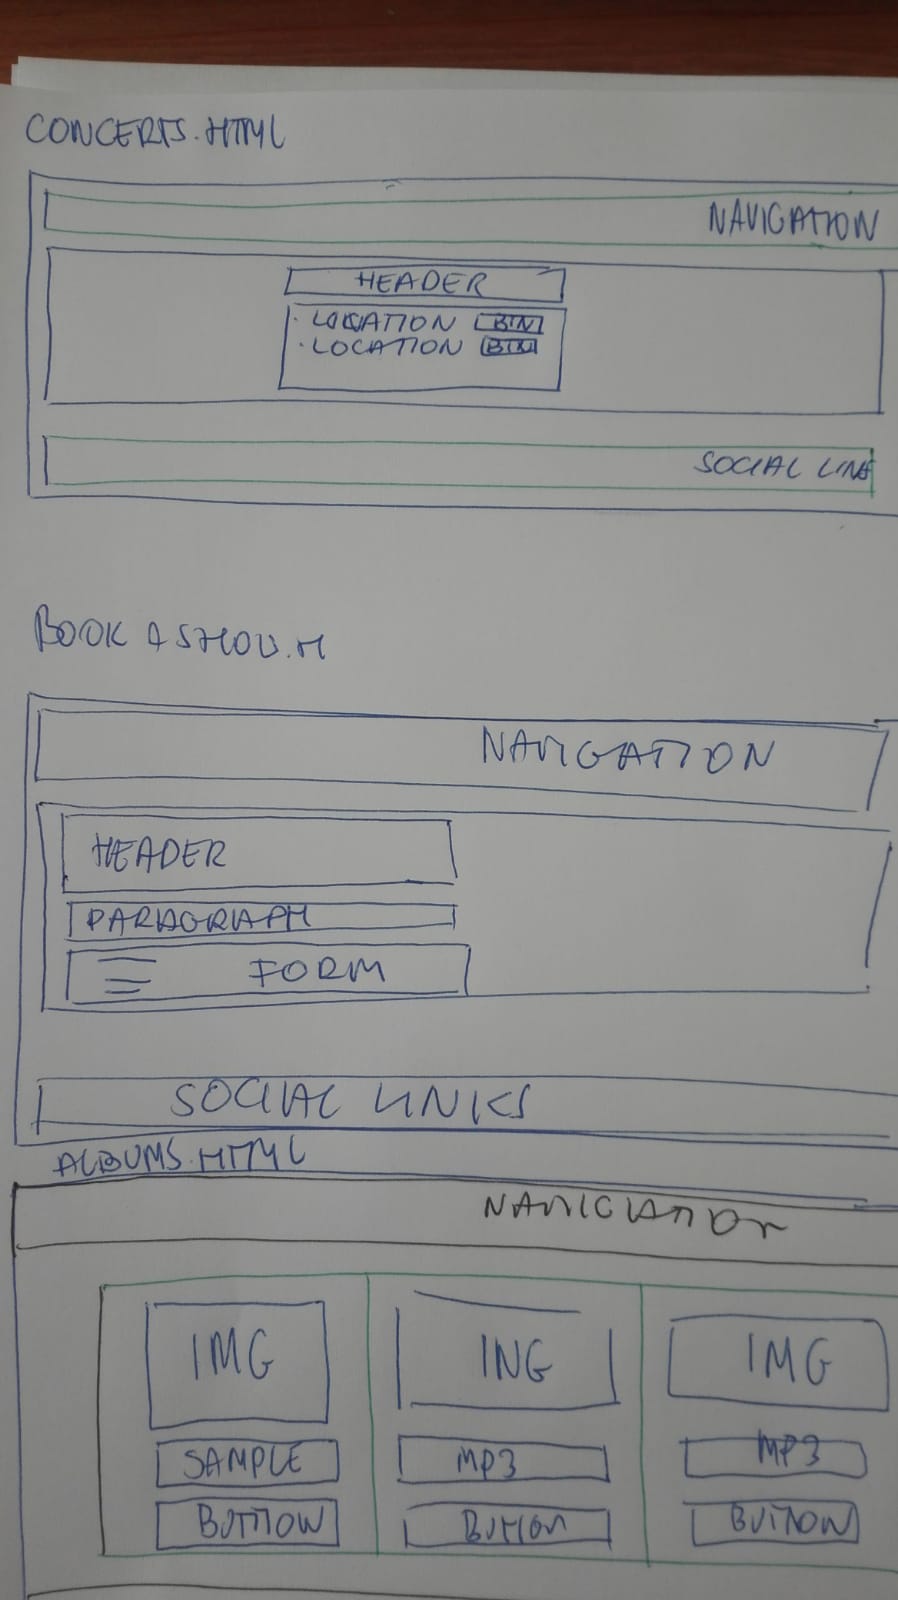 CONCERTS.HTML
NAVIGATION
HEADER
· LOCATION BTN
· LOCATION BTN
SOCIAL LINE
BOOK A SHOW.H
NAVIGATION
HEADER
PARAGRAPH
FORM
SOCIAL LINKS
ALBUMS.HTML
NAVIGATION
IMG ING IMG
SAMPLE MP3 MP3
BUTTON BUTTON BUTTON